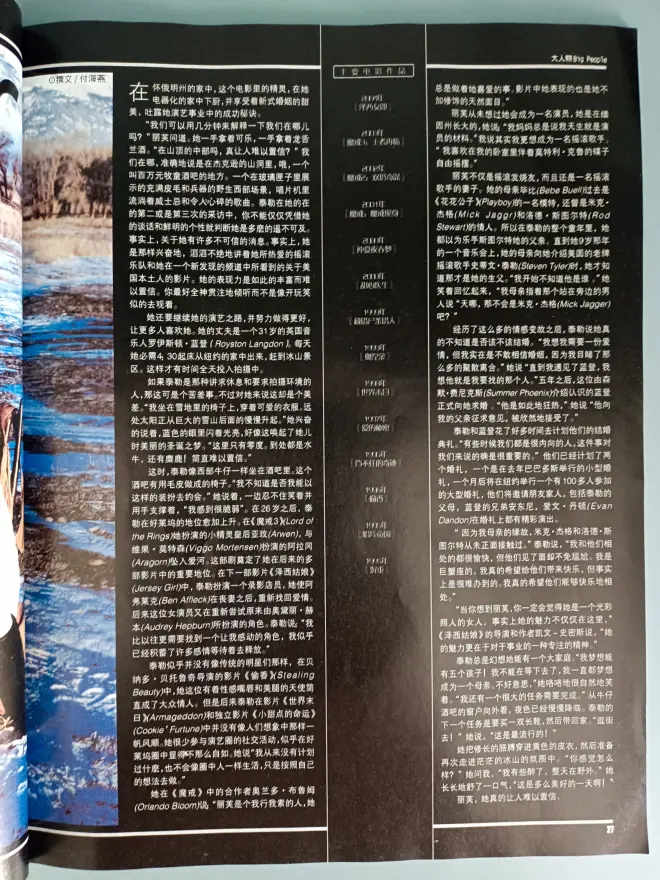 ◎撰文/付海燕
在怀俄明州的家中，这个电影里的精灵，在她
电器化的家中下厨，并享受着新式婚姻的甜
美，吐露她演艺事业中的成功秘诀。
“我们可以用几分钟来解释一下我们在哪儿
吗？”丽芙问道。她一手拿着可乐，一手拿着龙舌
兰酒。“在山顶的中部吗，真让人难以置信？”我
们在哪，准确地说是在杰克逊的山洞里，哦，一个
叫百万元牧童酒吧的地方。一个在玻璃匣子里展
示的充满皮毛和兵器的野生西部场景，唱片机里
流淌着威士忌和令人心碎的歌曲。泰勒在她的在
的第二或是第三次的采访中，你不能仅仅凭借她
的谈话和鲜明的个性就判断她是多麽的遥不可及。
事实上，关于她有许多不可信的消息。事实上，她
是那样兴奋地，滔滔不绝地讲着她所热爱的摇滚
乐队和她在一个新发现的频道中所看到的关于美
国本土人的影片。她的表现力是如此的丰富而难
以置信。你最好全神贯注地倾听而不是像开玩笑
似的去观看。
她还要继续她的演艺之路，并努力做得更好，
让更多人喜欢她。她的丈夫是一个31岁的英国音
乐人罗伊斯顿·蓝登（Royston Langdon）。每天
她必需4：30起床从纽约的家中出来，赶到冰山景
区。这样才有时间全天投入拍摄中。
如果泰勒是那种讲求休息和要求拍摄环境的
人，那这可是个苦差事。不过对她来说这却是个美
差。“我坐在雪地里的椅子上，穿着可爱的衣服。远
处太阳正从巨大的雪山后面的慢慢升起。”她兴奋
的说着，蓝色的眼里闪着光亮，好像这唤起了她儿
时美丽的圣诞之梦。“这里只有零度。到处都是水
牛，还有麋鹿！简直难以置信。”
这时，泰勒像西部牛仔一样坐在酒吧里。这个
酒吧有用毛皮做成的椅子。“我不知道是否我能以
这样的装扮去约会。”她说着，一边忍不住笑着并
用手支撑着，“我感到很脆弱”。在26岁之后，泰
勒在好莱坞的地位愈加上升。在《魔戒3》(Lord of
the Rings)她扮演的小精灵皇后亚玫(Arwen)，与
维果·莫特森(Viggo Mortensen)扮演的阿拉冈
(Aragorn)坠入爱河。这部剧奠定了她在后来的多
部影片中的重要地位。在下一部影片《泽西姑娘》
(Jersey Girl)中，泰勒扮演一个录影店员，她使阿
弗莱克(Ben Affleck)在丧妻之后，重新找回爱情。
后来这位女演员又在重新尝试原来由奥黛丽·赫
本(Audrey Hepburn)所扮演的角色。泰勒说：“我
比以往更需要找到一个让我感动的角色，我似乎
已经积蓄了许多感情等待着去释放。”
泰勒似乎并没有像传统的明星们那样，在贝
纳多·贝托鲁奇导演的影片《偷香》(Stealing
Beauty)中，她这位有着性感嘴唇和美腿的天使简
直成了大众情人。但是后来泰勒在影片《世界末
日》(Armageddon)和独立影片《小甜点的命运》
(Cookie' Furtune)中并没有像人们想象中那样一
帆风顺。她很少参与演艺圈的社交活动，似乎在好
莱坞圈中显得不那么自如。她说“我从来没有计划
过什麽，也不会像圈中人一样生活，只是按照自己
的想法去做。”
她在《魔戒》中的合作者奥兰多·布鲁姆
(Orlando Bloom)说：“丽芙是个我行我素的人，她
主要电影作品
2004年
[泽西女郎]
2003年
[魔戒3：王者再临]
2002年
[魔戒2：双塔奇谋]
2001年
[魔戒：魔戒现身]
2000年
[仲夏夜春梦]
2000年
1999年
1999年
1998年
[世界末日]
1997年
1996年
[挡不住的奇迹]
1996年
[偷香]
1995年
1995年
大人物Big People
总是做着她喜爱的事。影片中她表现的也是她不
加修饰的天然面目。”
丽芙从未想过她会成为一名演员，她是在缅
因州长大的，她说：“我妈妈总是说我天生就是演
员的材料。”我说其实我更想成为一名摇滚歌手。
“我喜欢在我的卧室里伴着莫特利·克鲁的碟子
自由摇摆。”
丽芙不仅是摇滚发烧友，而且还是一名摇滚
歌手的妻子。她的母亲毕比(Bebe Buell)过去是
《花花公子》(Playboy)的一名模特，还曾是米克·
杰格(Mick Jaggr)和洛德·斯图尔特(Rod
Stewart)的情人。所以在泰勒的整个童年里，她
都以为乐手斯图尔特是她的父亲。直到她9岁那年
的一个音乐会上，她的母亲向她介绍美国的老牌
摇滚歌手史蒂文·泰勒(Steven Tyler)时，她才知
道那才是她的生父。“我开始不知道他是谁。”她
笑着回忆起来，“我母亲指着那个站在旁边的男
人说“天哪，那不会是米克·杰格(Mick Jagger)
吧？”
经历了这么多的情感变故之后，泰勒说她真
的不知道是否该不该结婚。“我想我需要一份爱
情，但我实在是不敢相信婚姻，因为我目睹了那
么多的聚散离合。”她说“直到我遇见了蓝登，我
想他就是我要找的那个人。”五年之后，这位由森
默·费尼克斯(Summer Phoenix)介绍认识的蓝登
正式向她求婚。“他是如此地狂热，”她说“他向
我的父亲征求意见，被欣然地接受了。”
泰勒和蓝登花了好多时间去计划他们的结婚
典礼。“有些时候我们都是很内向的人，这件事对
我们来说的确是很重要的。”他们已经计划了两
个婚礼，一个是在去年巴巴多斯举行的小型婚
礼，一个月后将在纽约举行一个有100多人参加
的大型婚礼，他们将邀请朋友家人，包括泰勒的
父母，蓝登的兄弟安东尼，爱文·丹顿(Evan
Dandon)在婚礼上都有精彩演出。
“因为我母亲的缘故，米克·杰格和洛德·斯
图尔特从未正面接触过。”泰勒说，“我和他们相
处的都很愉快，但他们见了面却不免尴尬。我是
巨蟹座的，我真的希望给他们带来快乐，但事实
上是很难办到的。我真的希望他们能够快乐地相
处。”
“当你想到丽芙，你一定会觉得她是一个光彩
照人的女人，事实上她的魅力不仅仅在这里，”
《泽西姑娘》的导演和作者凯文－史密斯说，“她
的魅力更在于对于事业的一种专注的精神。”
泰勒总是幻想她能有一个大家庭。“我梦想能
有五个孩子！我不能在等下去了，我一直都梦想
成为一个母亲。不好意思，”她咯咯地很自然地笑
着。“我还有一个很大的任务需要完成。”从牛仔
酒吧的窗户向外看，夜色已经慢慢降临。泰勒的
下一个任务是要买一双长靴，然后带回家。“逛街
去！”她说，“这是最流行的！”
她把修长的胳膊穿进黄色的皮衣，然后准备
再次走进茫茫的冰山的氛围中。“你感觉怎么
样？”她问我，“我有些醉了，整天在野外。”她
长长地舒了一口气，“这是多么美好的一天啊！”
丽芙，她真的让人难以置信。
27